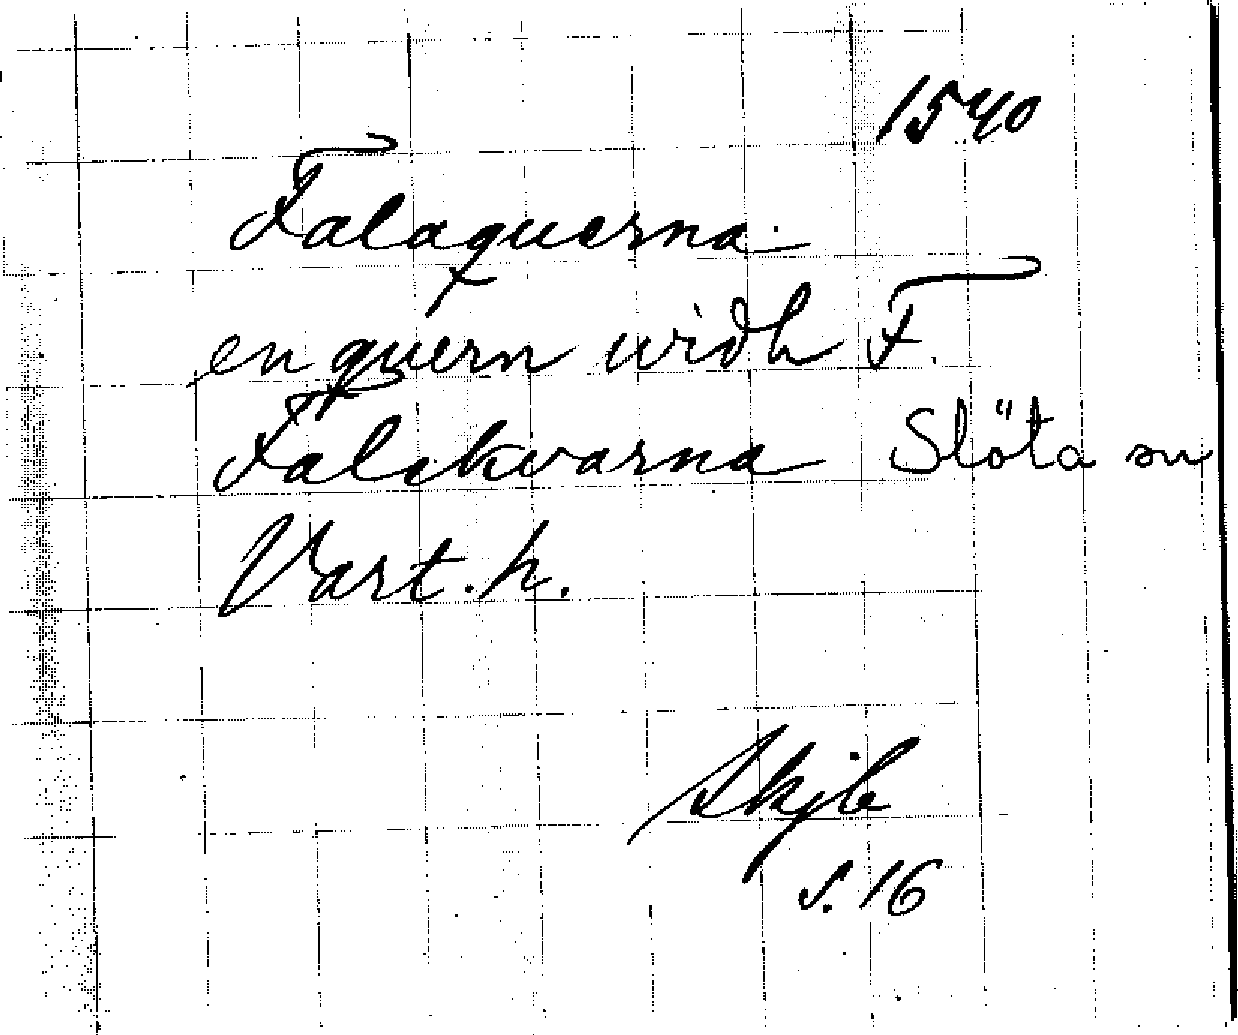 1540
Falaquerna
en quern widh F.
Falekvarna Slöta sn
Vart. h.
Skjb
s. 16